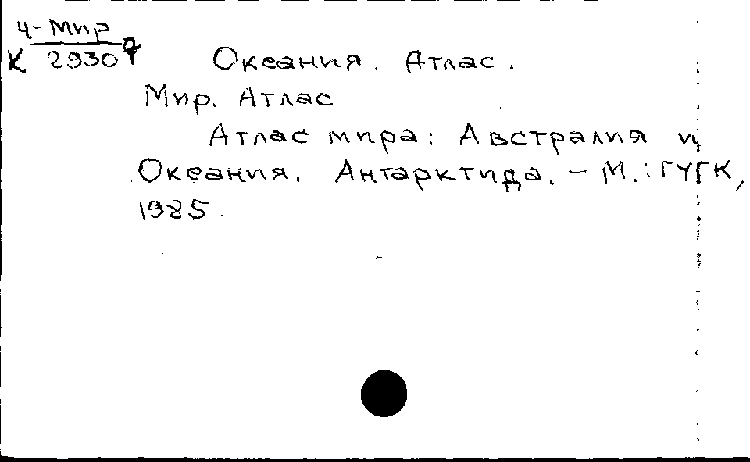 4-Мир
К 2930
Океания. Атлас.
Мир. Атлас
Атлас мира: Австралия и
Океания. Антарктида. - М.: ГУГК,
1985.